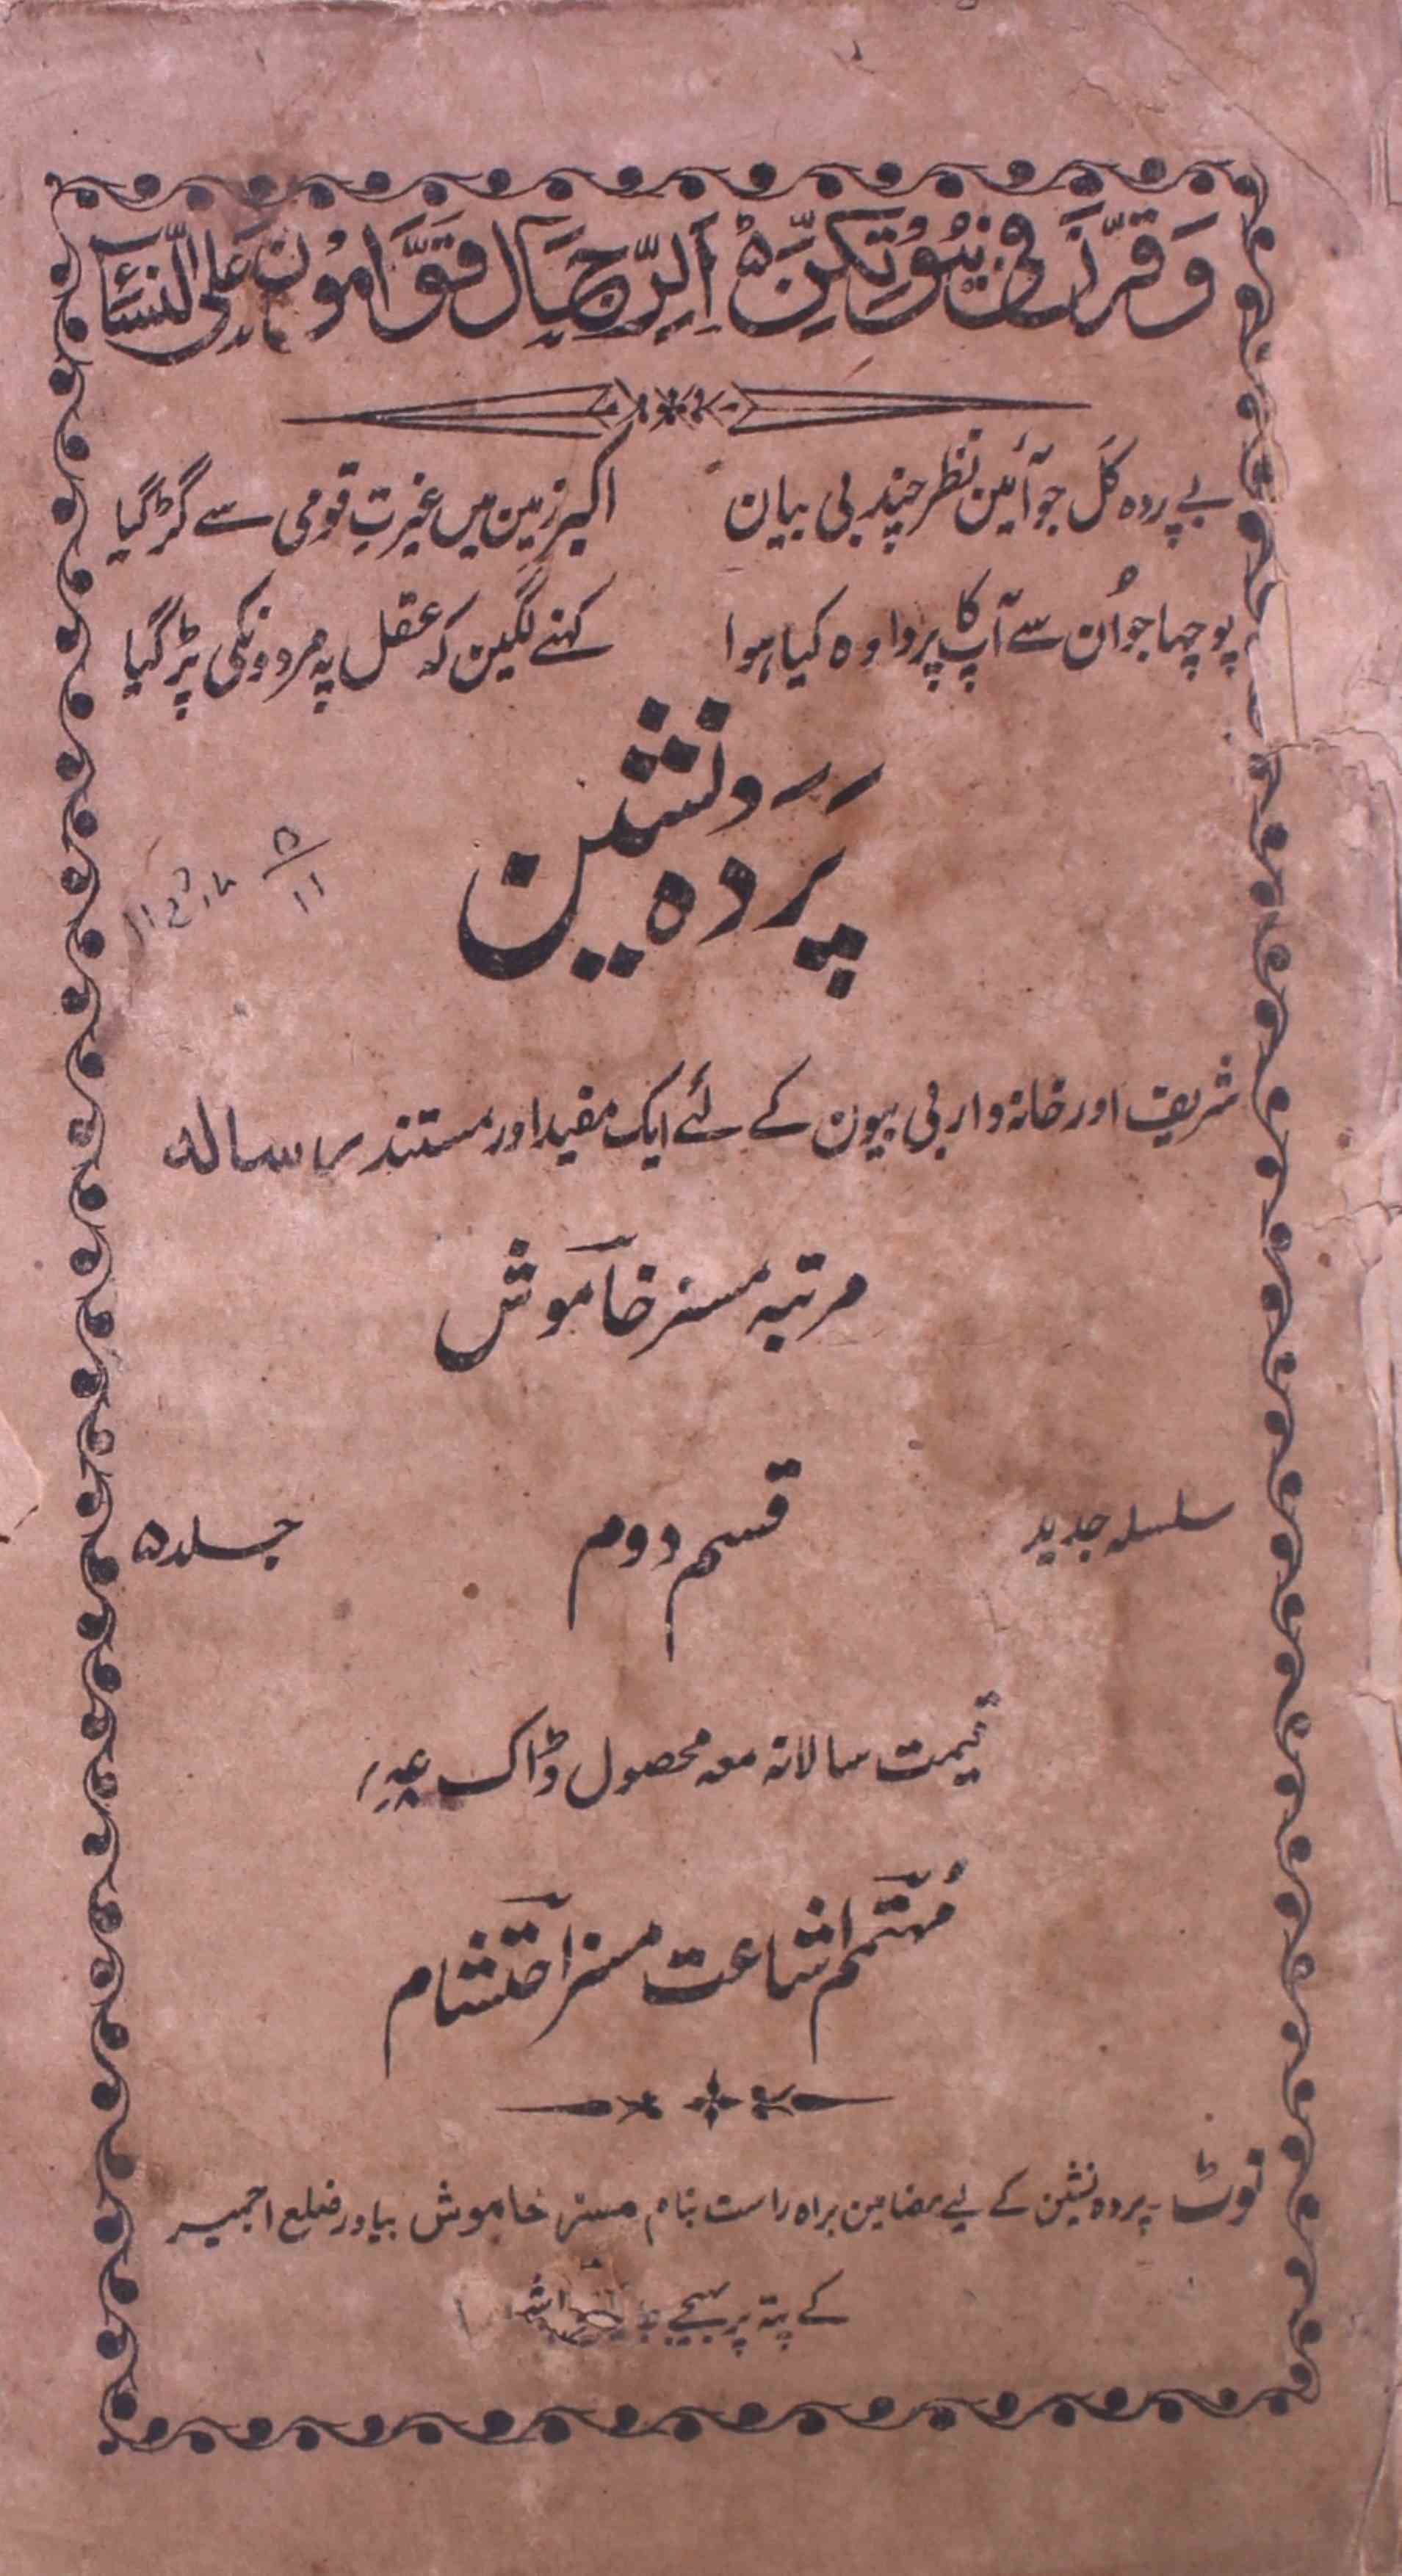 وَقَرْنَ فِی بُیُوْتِکُنَّ ؕ اَلرِّجَالُ قَوَّامُوْنَ عَلَی النِّسَآءِ
بے پردہ کل جو آئین نظر چند بی بیان اکبر زمین میں غیرتِ قومی سے گڑ گیا
پوچہا جو اُن سے آپ کا پردا وہ کیا ہوا کہنے لگین کہ عقل پہ مردونکی پڑ گیا
پردہ نشین
شریف اور خانہ دار بی بیون کے لئے ایک مفید اور مستند رسالہ
مرتبہ مسز خاموش
سلسلہ جدید قسم دوم جلد ۵
قیمت سالانہ معہ محصول ڈاک
مُہتمم اشاعت مسز احتشام
نوٹ ۔ پردہ نشین کے لیے مضامین براہ راست بنام مسز خاموش بیاور ضلع اجمیر
کے پتہ پر بھیجے